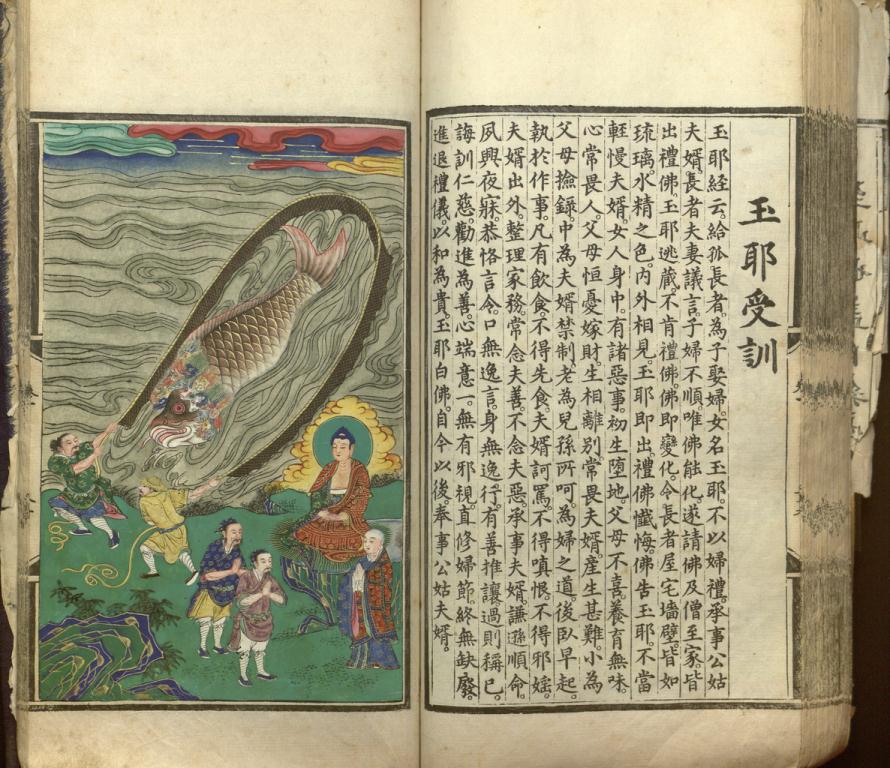 玉耶受訓
玉耶經云。給孤長者。為子娶婦。女名玉耶。不以婦禮。承事公姑
夫婿。長者夫妻議言。子婦不順。唯佛能化。遂請佛及僧至家。皆
出禮佛。玉耶逃藏。不肯禮佛。佛即變化。令長者屋宅墻壁。皆如
琉璃。水精之色。內外相見。玉耶即出。禮佛懺悔。佛告玉耶。不當
輕慢夫婿。女人身中。有諸惡事。初生墮地。父母不喜。養育無味。
心常畏人。父母恒憂嫁財。生相離別。常畏夫婿。產生甚難。小為
父母撿錄。中為夫婿禁制。老為兒孫所呵。為婦之道。後臥早起。
執於作事。凡有飲食。不得先食。夫婿訶罵。不得嗔恨。不得邪婬。
夫婿出外。整理家務。常念夫善。不念夫惡。承事夫婿。謙遜順命。
夙興夜寐。恭恪言令。口無逸言。身無逸行。有善推讓。過則稱己。
誨訓仁慈。勸進為善。心端意一。無有邪視。直修婦節。終無缺廢。
進退禮儀。以和為貴。玉耶白佛。自今以後。奉事公姑夫婿。